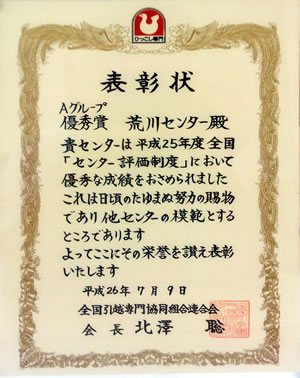 ひっこし専門
表彰状
Aグループ
優秀賞 荒川センター殿
貴センターは平成25年度全国
「センター評価制度」において
優秀な成績をおさめられました
これは日頃のたゆまぬ努力の賜物
であり他センターの模範とする
ところであります
よってここにその栄誉を讃え表彰
いたします
平成26年7月9日
全国引越専門協同組合連合会
会長 北澤 聡